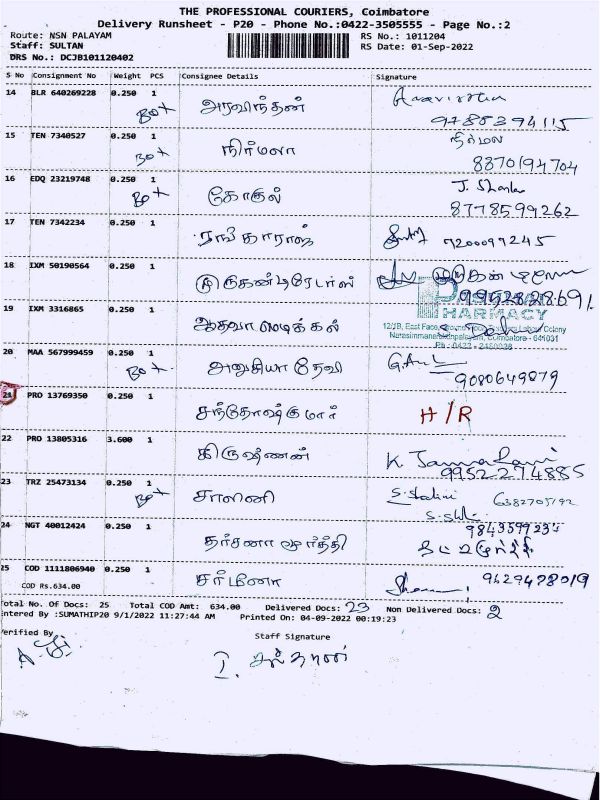 THE PROFESSIONAL COURIERS, Coimbatore
Delivery Runsheet - P20 - Phone No.:0422-3505555 - Page No.:2
Route: NSN PALAYAM
RS No.: 1011204
Staff: SULTAN
RS Date: 01-Sep-2022
DRS No.: DCJB101120402
S No Consignment No Weight PCS Consignee Details Signature
14 BLR 640269228 0.250 1
Box அரவிந்தன்
97885394115
15 TEN 7340527 0.250 1 நிர்மலா
Box நிர்மலா
8870194704
16 EDQ 23219748 0.250 1
Box கோகுல்
8778599262
17 TEN 7342234 0.250 1
7200097245
18 IXM 50190564 0.250 1
9952828691
PHARMACY
19 IXM 3316865 0.250 1
20 MAA 567999459 0.250 1
Box அனுசியா தேவி
9080649879
21 PRO 13769350 0.250 1
சந்தோஷ்குமார் H/R
22 PRO 13805316 3.600 1
கிருஷ்ணன்
9952274885
23 TRZ 25473134 0.250 1
Box சாலினி S. Shalini 6382705192
24 NGT 40012424 0.250 1 9843599234
25 COD 1111806940 0.250 1
9629428019
COD Rs.634.00
Total No. Of Docs: 25 Total COD Amt: 634.00 Delivered Docs: 23 Non Delivered Docs: 2
Entered By :SUMATHIP20 9/1/2022 11:27:44 AM Printed On: 04-09-2022 00:19:23
Verified By Staff Signature